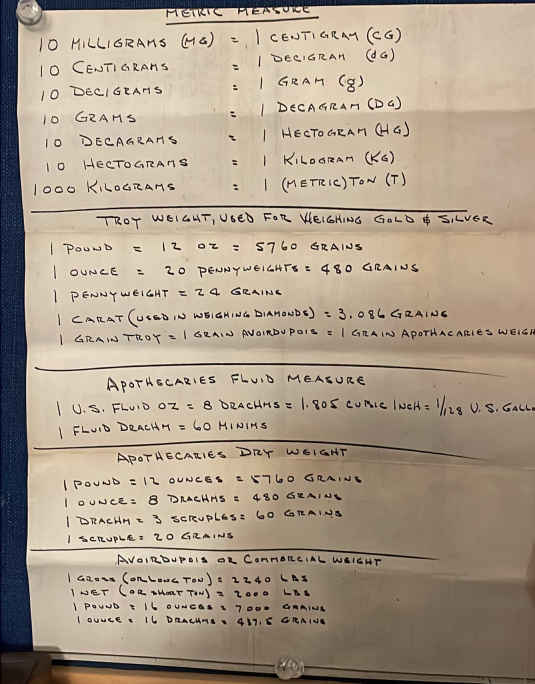 METRIC MEASURE
10 MILLIGRAMS (MG) = 1 CENTIGRAM (CG)
10 CENTIGRAMS = 1 DECIGRAM (dG)
10 DECIGRAMS = 1 GRAM (g)
10 GRAMS = 1 DECAGRAM (DG)
10 DECAGRAMS = 1 HECTOGRAM (HG)
10 HECTOGRAMS = 1 KILOGRAM (KG)
1000 KILOGRAMS = 1 (METRIC) TON (T)
TROY WEIGHT, USED FOR WEIGHING GOLD & SILVER
1 POUND = 12 OZ = 5760 GRAINS
1 OUNCE = 20 PENNYWEIGHTS = 480 GRAINS
1 PENNYWEIGHT = 24 GRAINS
1 CARAT (USED IN WEIGHING DIAMONDS) = 3.086 GRAINS
1 GRAIN TROY = 1 GRAIN AVOIRDUPOIS = 1 GRAIN APOTHACARIES WEIGH
APOTHECARIES FLUID MEASURE
1 U.S. FLUID OZ = 8 DRACHMS = 1.805 CUBIC INCH = 1/128 U.S. GALL
1 FLUID DRACHM = 60 MINIMS
APOTHECARIES DRY WEIGHT
1 POUND = 12 OUNCES = 5760 GRAINS
1 OUNCE = 8 DRACHMS = 480 GRAINS
1 DRACHM = 3 SCRUPLES = 60 GRAINS
1 SCRUPLE = 20 GRAINS
AVOIRDUPOIS OR COMMERCIAL WEIGHT
1 GROSS (OR LONG TON) = 2240 LBS
1 NET (OR SHORT TON) = 2000 LBS
1 POUND = 16 OUNCES = 7000 GRAINS
1 OUNCE = 16 DRACHMS = 437.5 GRAINS